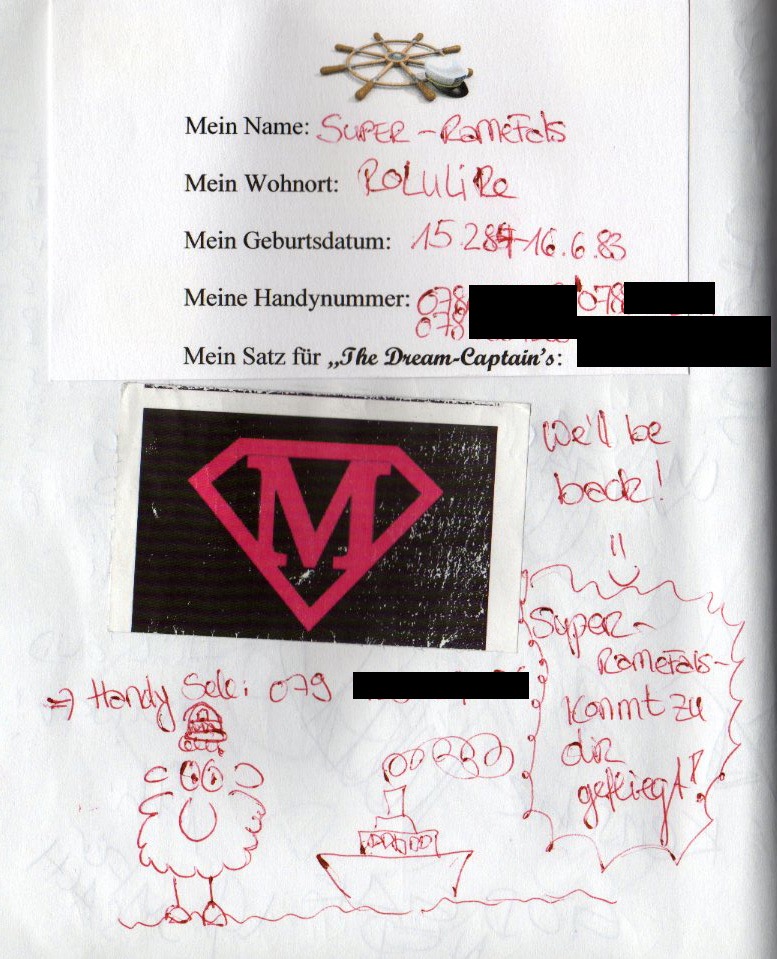 Mein Name: SUPER-RAMEFALS
Mein Wohnort: ROLULIRe
Mein Geburtsdatum: 15.2.84-16.6.83
Meine Handynummer: 078 078
078
Mein Satz für „The Dream-Captain's:
We'll be
back!
M
Super-
RAMEFALS-
kommt zu
dir
gefliegt!
=> Handy Seli: 079